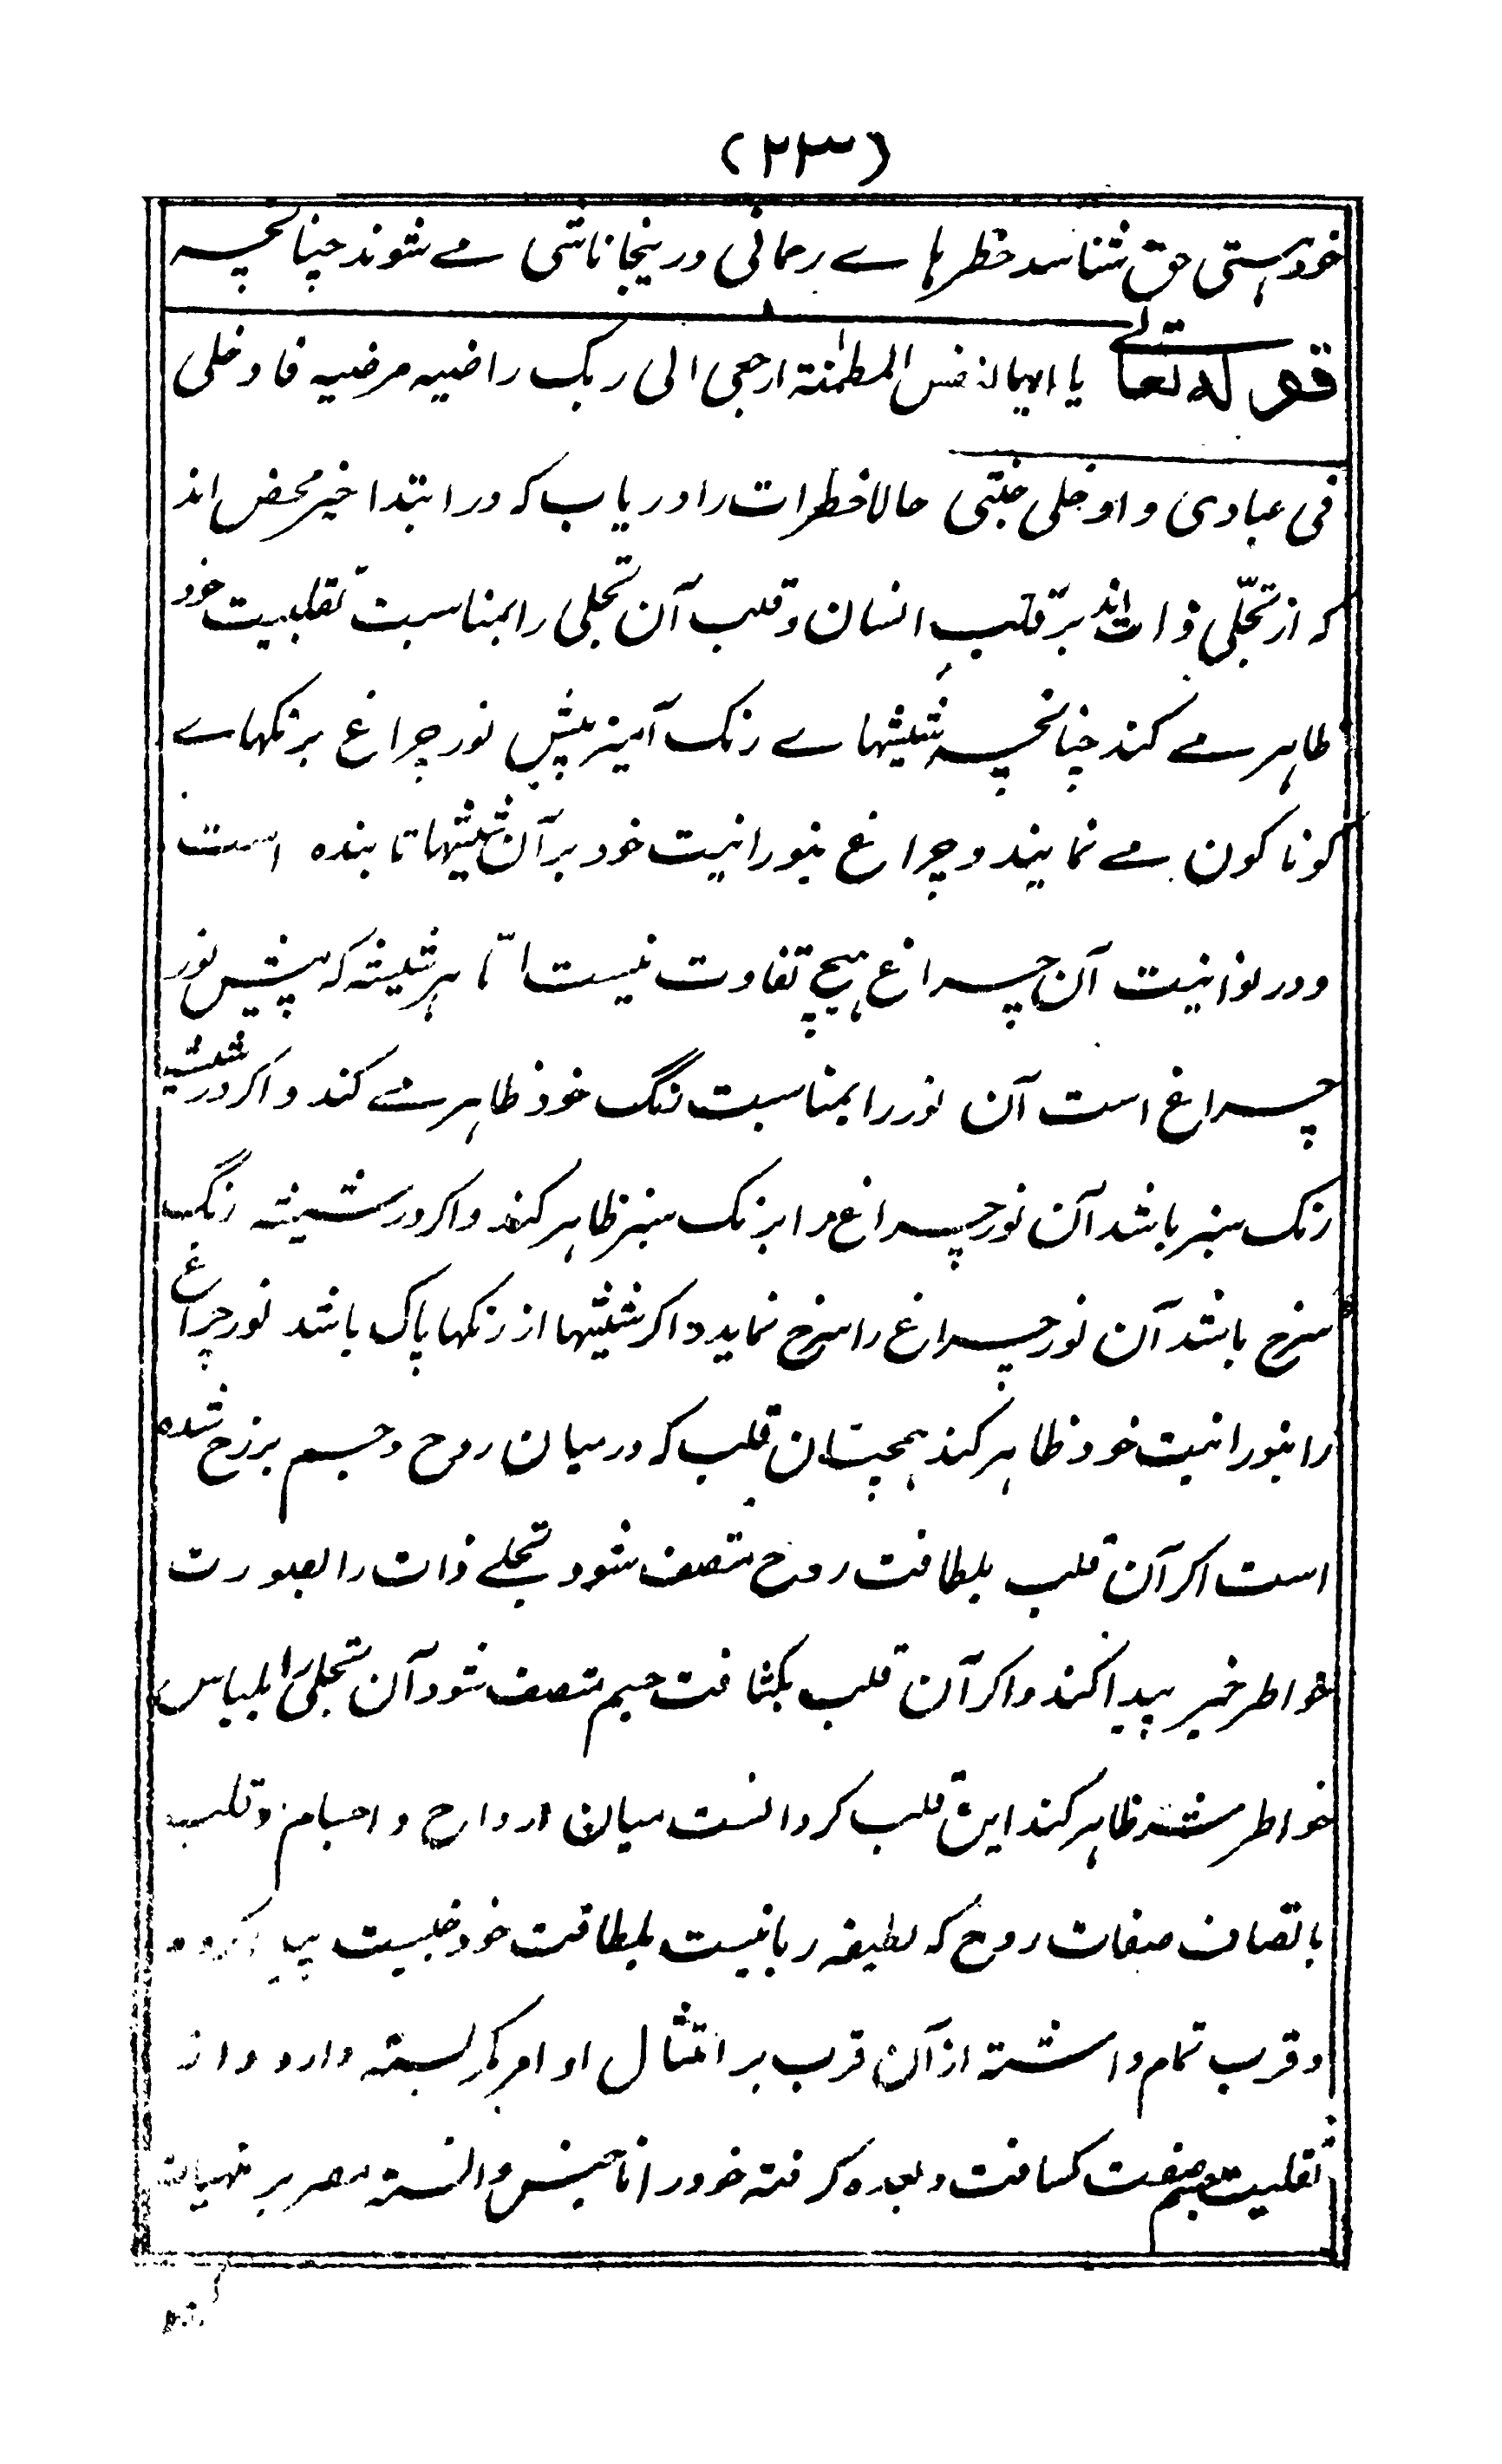 (۲۳)
خود هستی حق شناسد خطرہا ے رحمانی درینجا ناشی مے شوند چنانچہ
قولہ تعالے یا ایہا النفس المطمئنة ارجعی الی ربک راضیہ مرضیہ فادخلی
فی عبادی وادخلی جنتی حالا خطرات را دریاب کہ در ابتدا خیر محض اند
کہ از تجلّی ذات اند بر قلب انسان و قلب آن تجلی را بمناسبت تقلبیت خود
ظاہر مے کند چنانچہ شیشہا ے رنک آمیز پیش نور چراغ برنکہا ے
کوناکون مے نمایند و چراغ بنورانیت خود بر آن شیشہا تابندہ است
و در نورانیت آن چراغ ہیچ تفاوت نیست امّا ہر شیشہ کہ پیش نور
چراغ است آن نور را بمناسبت رنگ خود ظاہر مے کند و اکر در شیشہ
رنک سبز باشد آن نور چراغ را برنک سبز ظاہر کند و اکر در شیشہ رنگ
سرخ باشد آن نور چراغ را سرخ نماید و اکر شیشہا از رنکہا پاک باشد نور چراغ
را بنورانیت خود ظاہر کند ہمچنان قلب کہ درمیان روح و جسم برزخ شدہ
است اکر آن قلب بلطافت روح متصف شود تجلے ذات را بصورت
خواطر خیر پیدا کند و اکر آن قلب بکثافت جسم متصف شود آن تجلی را بلباس
خواطر شر ظاہر کند این قلب کردانست میان ارواح و اجسام و قلب
باتصاف صفات روح کہ لطیفہ ربانیست بلطافت خود جنسیت پیدا کردہ
و قرب تمام داشتہ از آن قرب بر امتثال اوامر کمر بستہ دارد و از
تقلبیت بصفت جسم کسافت و بعدہ کرفتہ خود را ناجنس دانستہ مصر بر منہیات